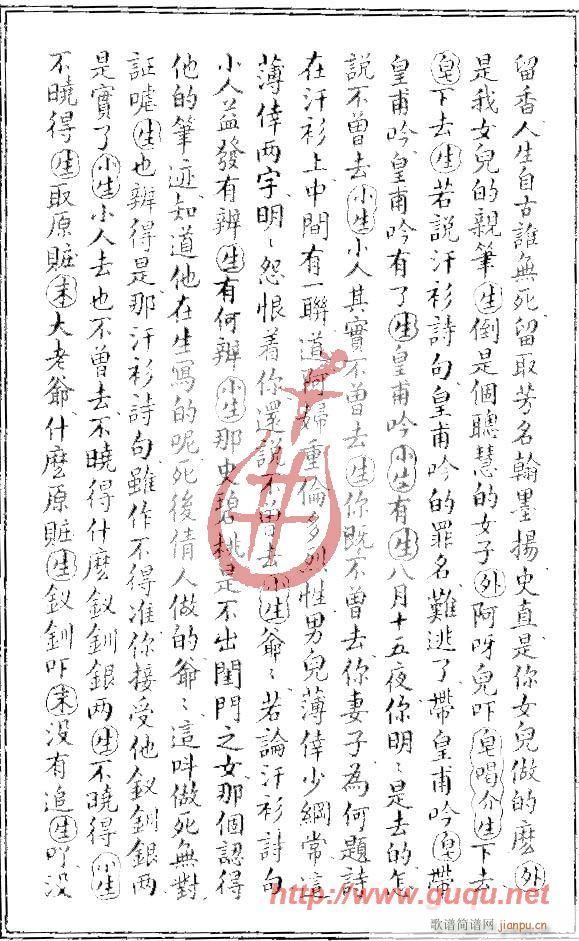 留香人生自古誰無死留取芳名翰墨揚史直是你女兒做的麽外
是我女兒的親筆生倒是個聰慧的女子外阿呀兒吓皂唱介生下去
皂下去生若說汗衫詩句皇甫吟的罪名難逃了帶皇甫吟皂帶
皇甫吟皇甫吟有了生皇甫吟小生有生八月十五夜你明〻是去的怎
說不曾去小生小人其實不曾去生你既不曾去你妻子為何題詩
在汗衫上中間有一聯道阿婦重倫多烈性男兒薄倖少綱常這
薄倖两字明〻怨恨着你還說不曾去小生爺〻若論汗衫詩句
小人益發有辨生有何辨小生那史碧桃是不出閨門之女那個認得
他的筆迹知道他在生寫的呢死後倩人做的爺〻這叫做死無對
証嘘生也辨得是那汗衫詩句雖作不得准你接受他釵釧銀两
是實了小生小人去也不曾去不曉得什麽釵釧銀两生不曉得小生
不曉得生取原賍末大老爺什麽原賍生釵釧吓末没有追生吖没
http://www.guqu.net
歌谱简谱网
jianpu.cn